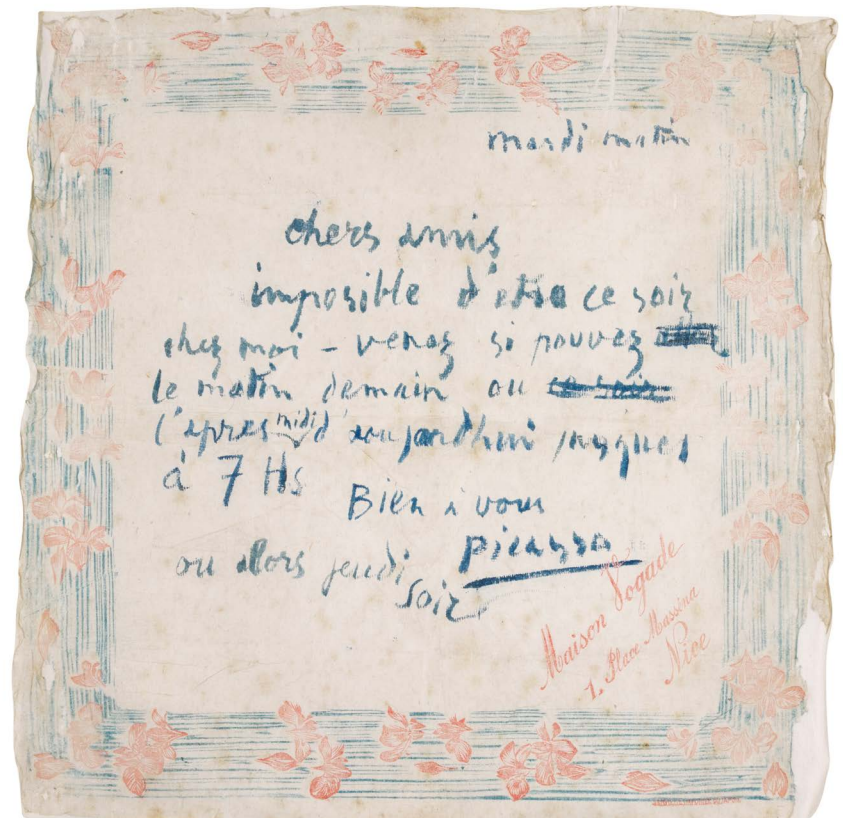 mardi matin
chers amis
imposible d'etre ce soir
chez moi - venez si pouvez
le matin demain ou ce soir
l'apres midi d'aujourdhui jusques
à 7 Hs
Bien à vous
picasso
ou alors jeudi
soir
Maison Vogade
1. Place Massena
Nice